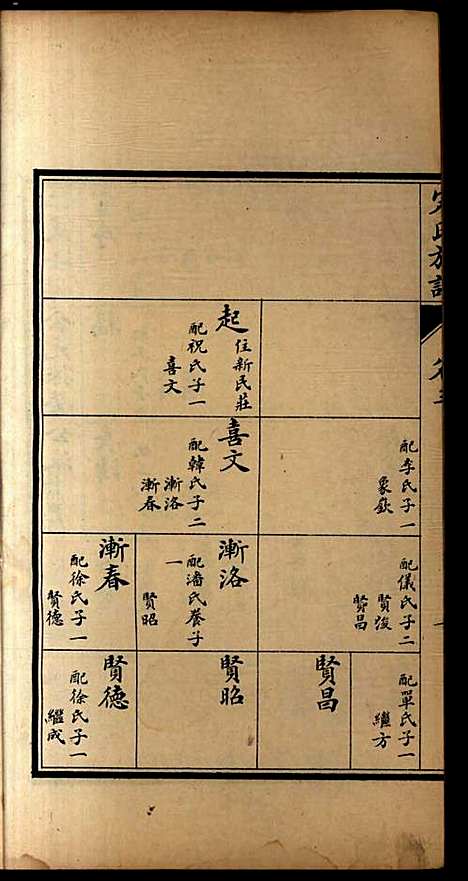 氏族譜
配李氏子一
象欽
配儀氏子二
賢浚
賢昌
配單氏子一
繼方
賢昌
起
住新民莊
配祝氏子一
喜文
喜文
配韓氏子二
漸洛
漸春
漸洛
配潘氏養子
一
賢昭
賢昭
漸春
配徐氏子一
賢德
賢德
配徐氏子一
繼成